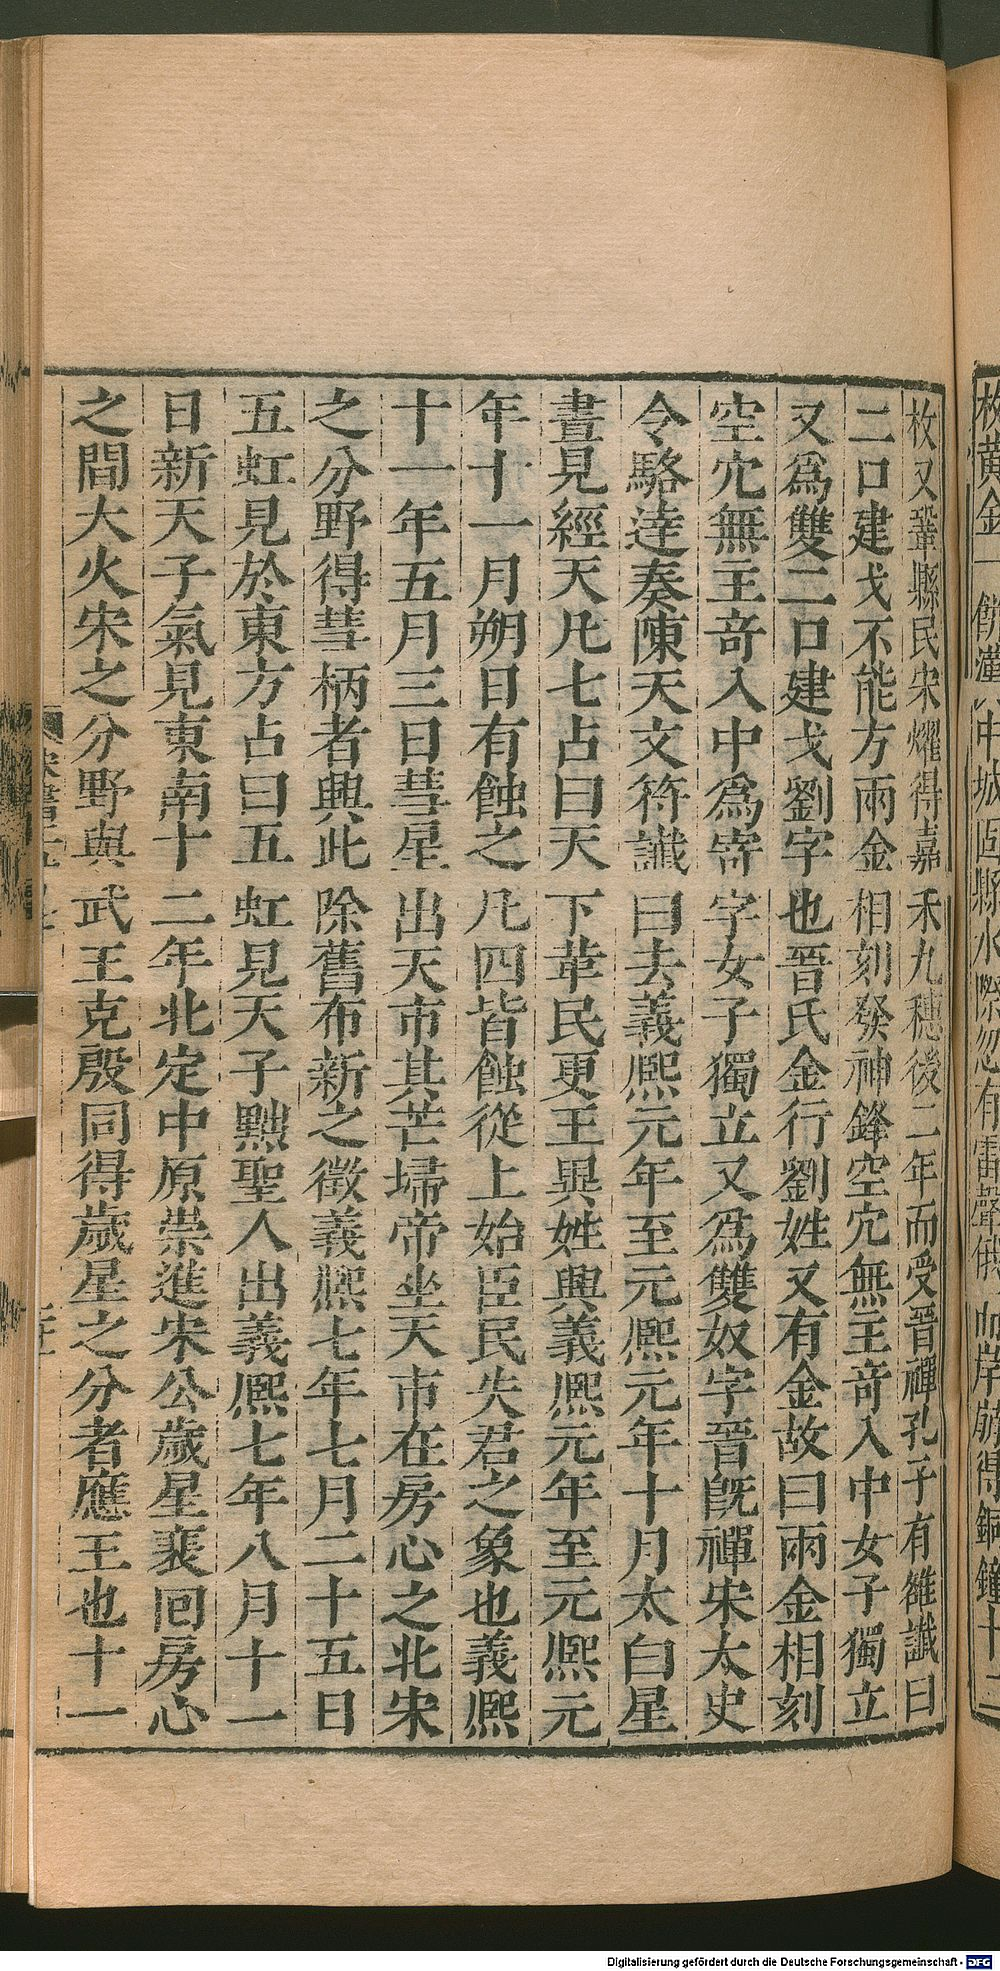 枚黃金一餅漢中城固縣水際忽有雷聲俄而岸崩得銅鐘十二
枚又鞏縣民宋燿得嘉禾九穗後二年而受晉禪孔子有雒讖曰
二口建戈不能方兩金相刻發神鋒空穴無主奇入中女子獨立
又爲雙二口建戈劉字也晉氏金行劉姓又有金故曰兩金相刻
空穴無主奇入中爲寄字女子獨立又爲雙奴字晉旣禪宋太史
令駱達奏陳天文符讖曰去義熙元年至元熙元年十月太白星
晝見經天凡七占曰天下革民更王異姓興義熙元年至元熙元
年十一月朔日有蝕之凡四皆蝕從上始臣民失君之象也義熙
十一年五月三日彗星出天市其芒埽帝坐天市在房心之北宋
之分野得彗柄者興此除舊布新之徵義熙七年七月二十五日
五虹見於東方占曰五虹見天子黜聖人出義熙七年八月十一
日新天子氣見東南十二年北定中原崇進宋公歲星裴回房心
之間大火宋之分野與武王克殷同得歲星之分者應王也十一
Digitalisierung gefördert durch die Deutsche Forschungsgemeinschaft - DFG